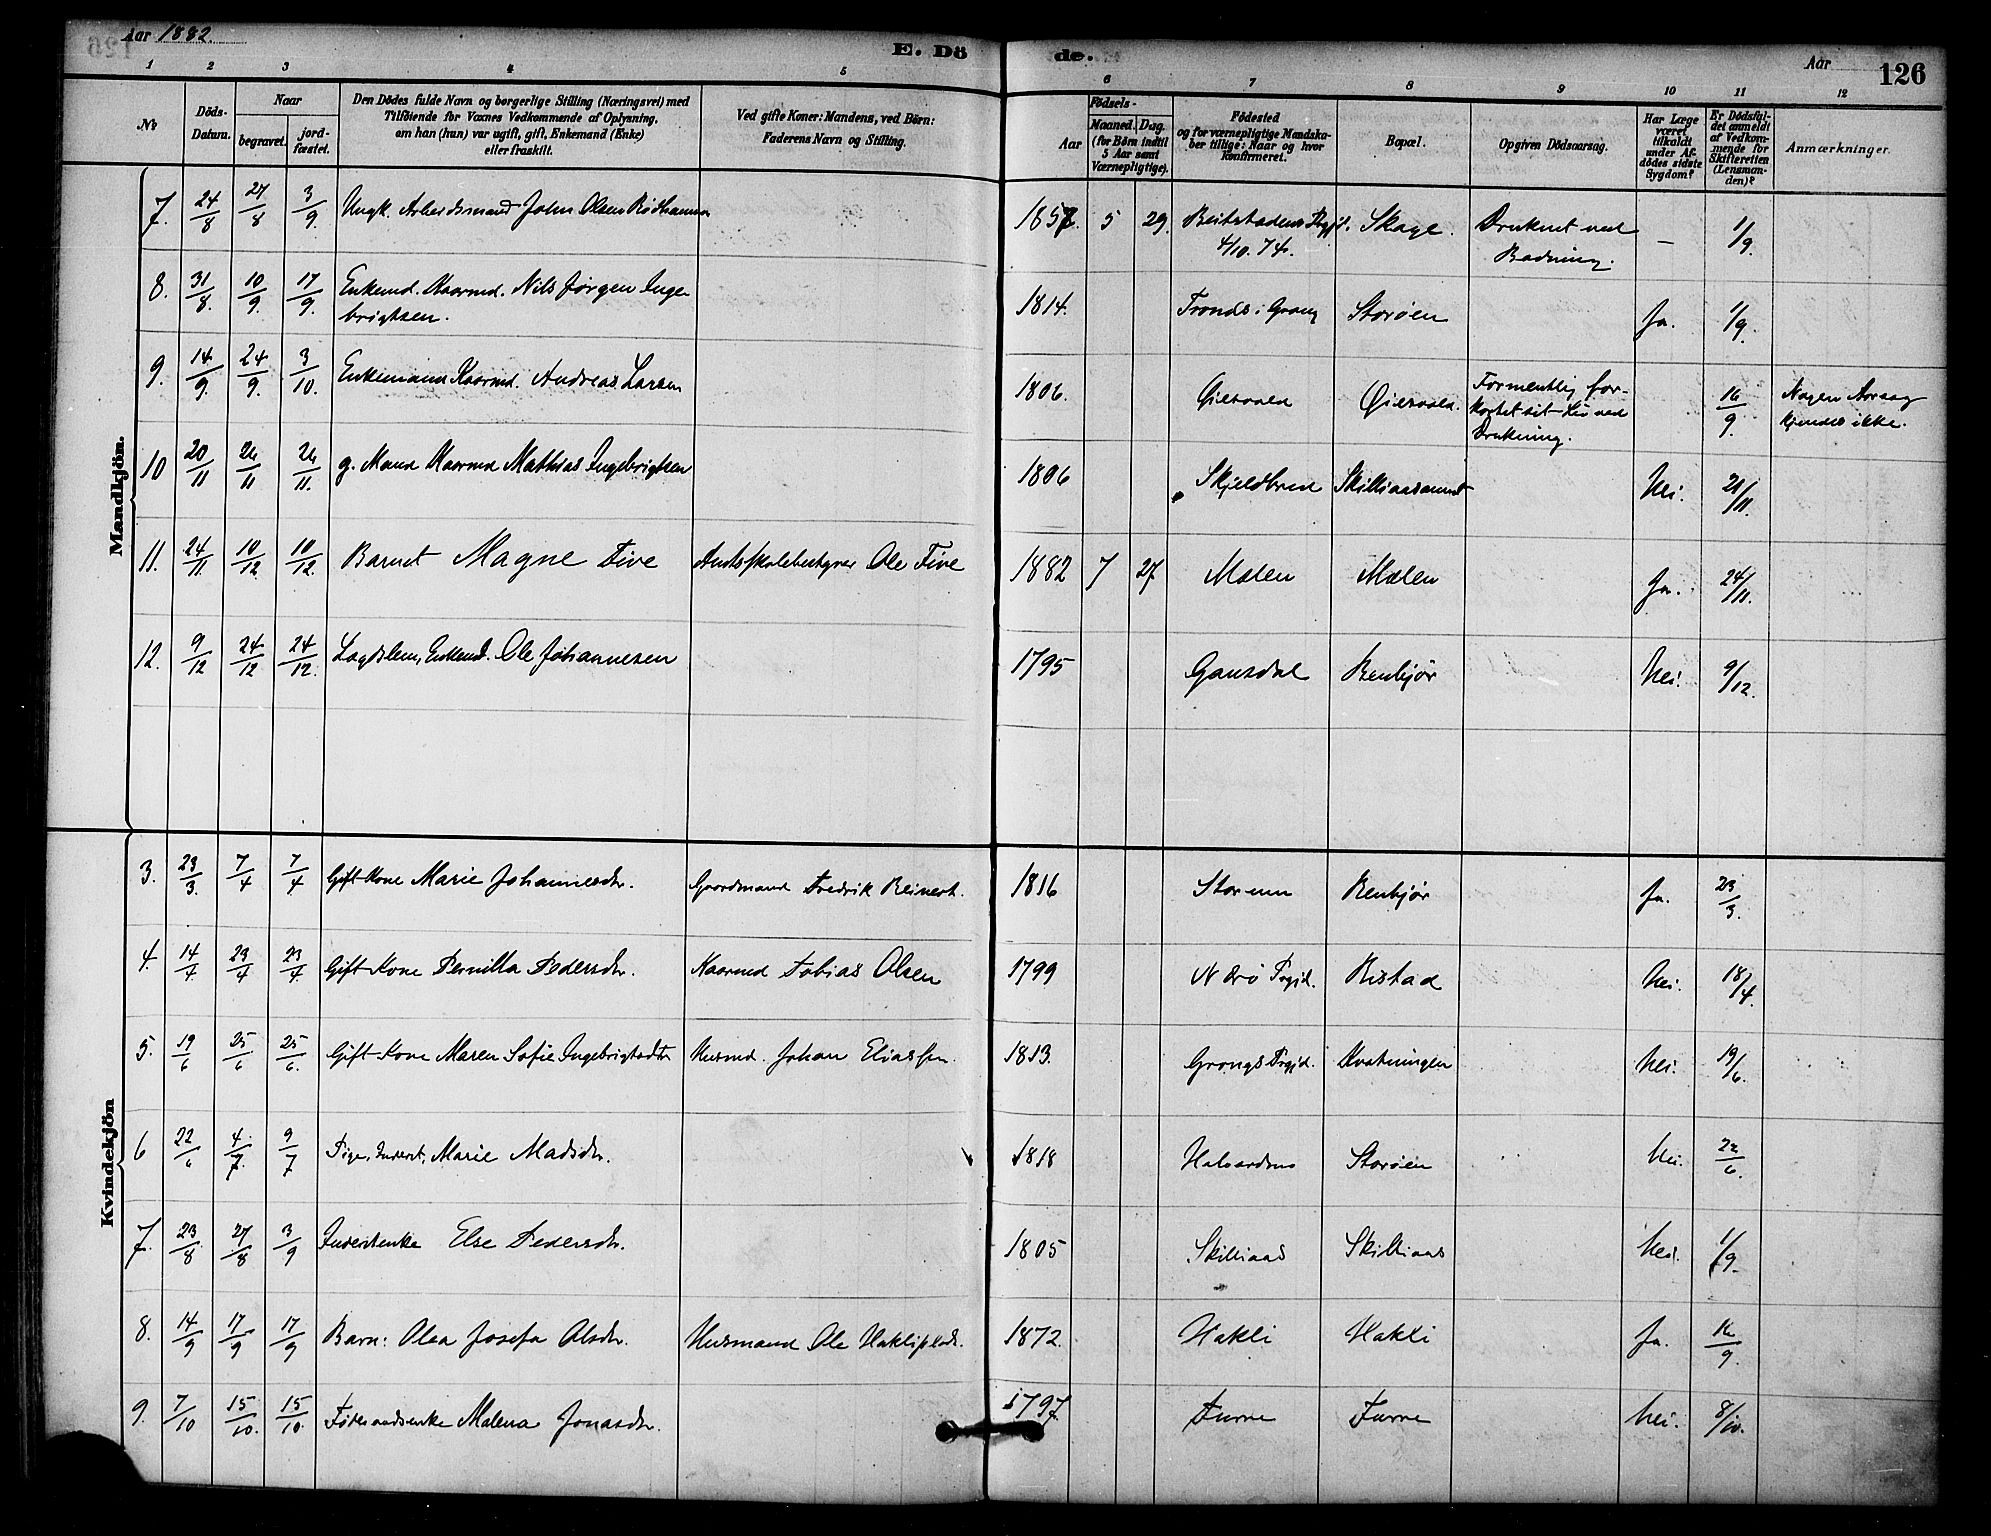 Aar 1882.
E. Dö
de.
Aar
126
1 2 3 4 5 6 7 8 9 10 11 12
№
Döds-
Datum.
Naar
begravet.
jord-
fæstet.
Den Dödes fulde Navn og borgerlige Stilling (Næringsvei) med
Tilföiende for Voxnes Vedkommende af Oplysning,
om han (hun) var ugift, gift, Enkemand (Enke)
eller fraskilt.
Ved gifte Koner: Mandens, ved Börn:
Faderens Navn og Stilling.
Födsels-
Aar
Maaned. Dag.
(for Börn indtil
5 Aar samt
Værnepligtige).
Födested
og for værnepligtige Mandska-
ber tillige: Naar og hvor
konfirmeret.
Bopæl.
Opgiven Dödsaarsag.
Har Læge
været
tilkaldt
under Af-
dödes sidste
Sygdom?
Er Dödsfal-
det anmeldt
af Vedkom-
mende for
Skifteretten
(Lensman-
den)?
Anmærkninger.
Mandkjön.
7. 24/8 27/8 3/9. Ungk. Arbeidsmand John Olsen Rödhammer 1857. 5 29. Beitstadens Prgjd. Skage. Druknet ved – 1/9.
4/10. 74. Badning.
8. 31/8. 10/9. 17/9. Enkemd. Kaarmd. Nils Jørgen Inge- 1814. Tronds i Grong Storøen Ja. 1/9.
brigtsen.
9. 14/9. 24/9. 3/10. Enkemand Kaarmd. Andreas Larsen 1806. Øiesvold Øiesvold. Formentlig for- 16/9. Nogen Aarsag
kortet sit Liv ved kjendes ikke.
Drukning.
10 20/11 26/11 26/11. g. Mand Kaarmd Mathias Ingebrigtsen 1806 Skjeldbred Skilliaasaunet Nei. 21/11.
11. 24/11 10/12 10/12. Barnet Magne Five Amtsskolebestyrer Ole Five 1882 7 27 Mælen Mælen Ja. 24/11.
12. 9/12 24/12 24/12. Lægdslem, Enkemd. Ole Johannesen 1795 Gansdal Renbjør Nei. 9/12.
Kvindekjön
3. 23/3. 7/4 7/4 Gift Kone Marie Johannesdr. Gaardmand Fredrik Reinert. 1816 Storeun Renbjør Ja. 23/3.
4. 14/4. 23/4 23/4. Gift Kone Pernilla Pedersdr. Kaarmd Tobias Olsen 1799 Nærö Prgjd. Ristad Nei. 18/4.
5. 19/6 25/6 25/6. Gift Kone Maren Sofie Ingebrigtsdtr Husmd. Johan Eliassen. 1813. Grongs Prgjd. Kvatningen Nei. 19/6.
6 22/6 4/7. 9/7 Pige, Inderst, Marie Madsdr. 1818 Halvardmo Storøen Nei. 22/6.
7. 23/8. 27/8 3/9 Inderstenke Else Pedersdr. 1805 Skilliaas Skilliaas Nei. 1/9.
8. 14/9 17/9 17/9 Barn: Olea Josefa Olsdr. Husmand Ole Hakliplads. 1872. Hakli Hakli Ja. 16/9.
9. 7/10 15/10. 15/10. Føderaadsenke Malena Jonasdr. 1797. Furre Furre Nei. 8/10.